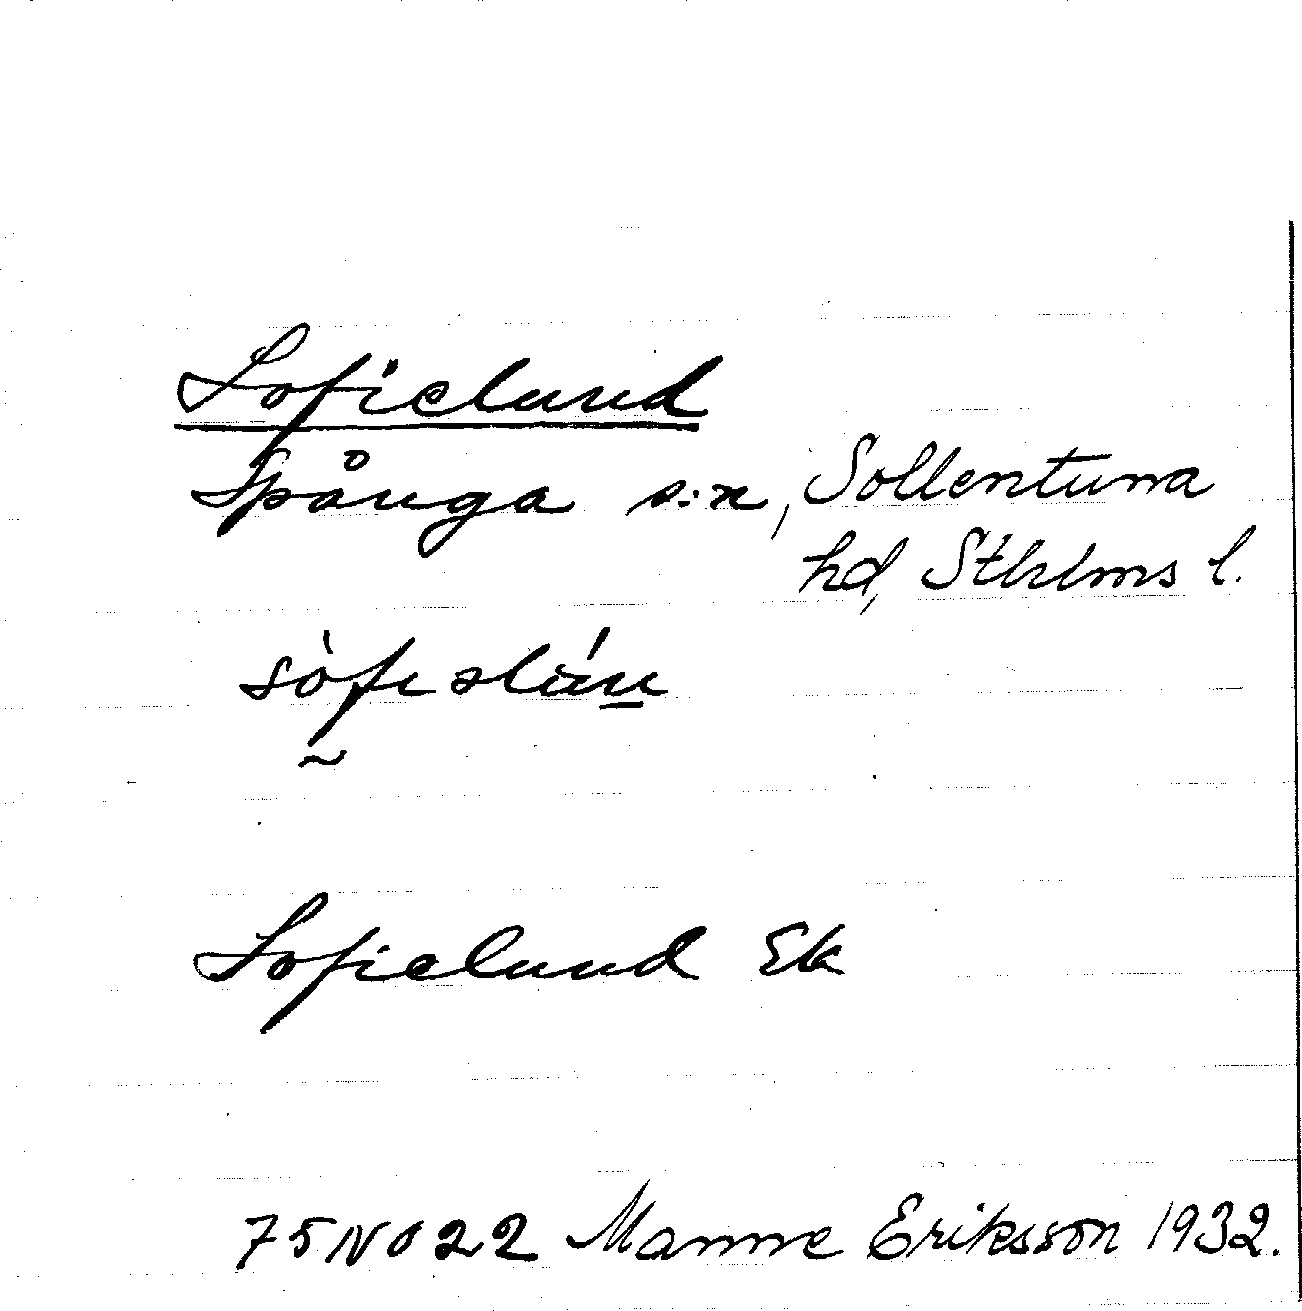 Sofielund
Spånga s:n, Sollentuna
hd, Sthlms l.
Sofielund Ek
75NO22 Manne Eriksson 1932.